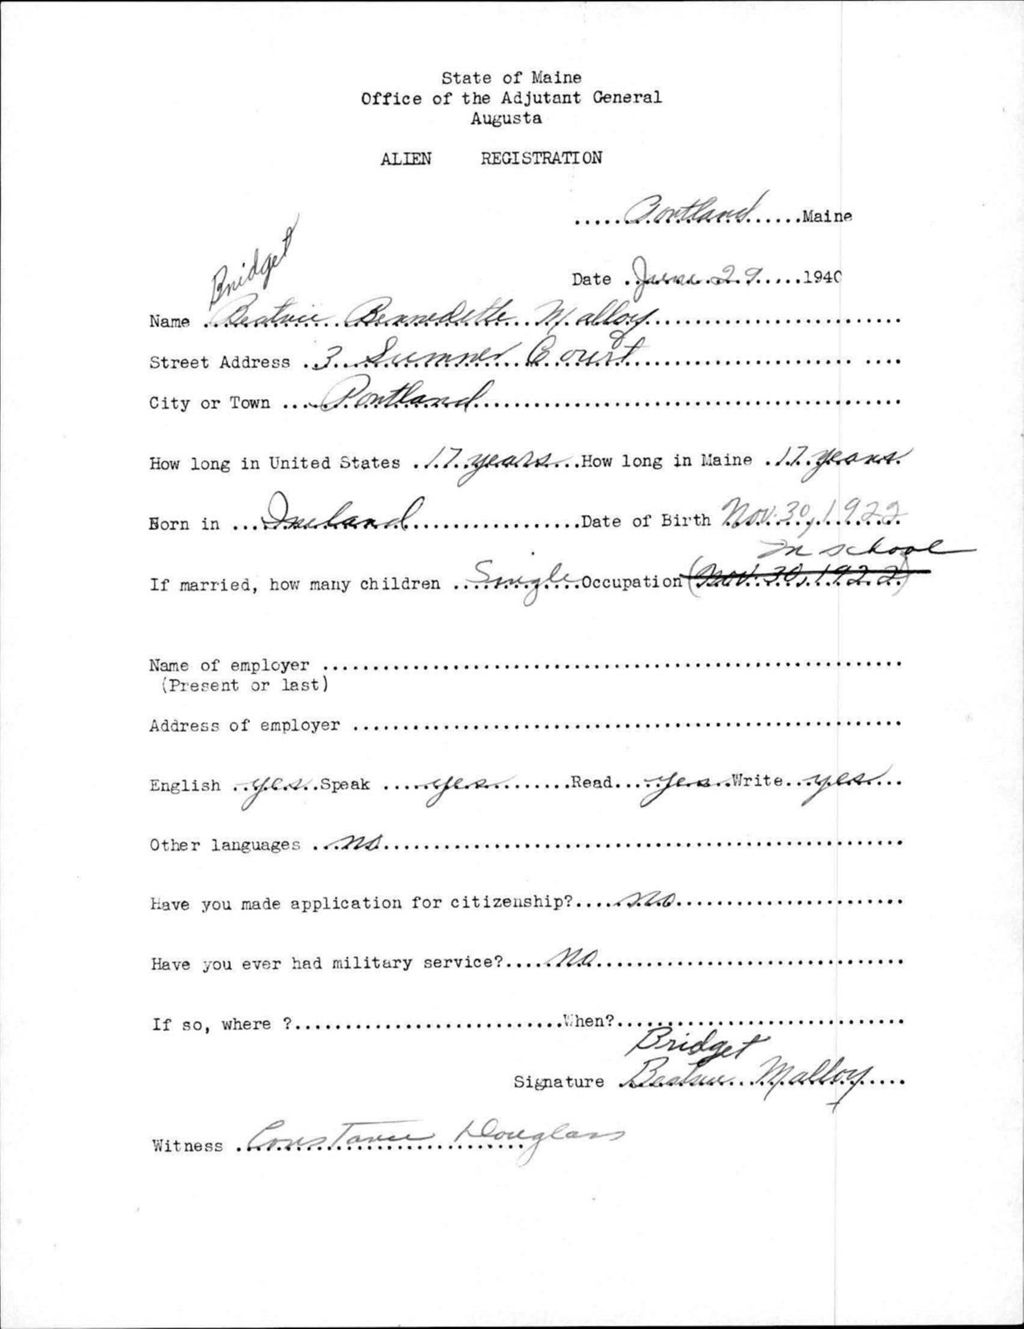 State of Maine
Office of the Adjutant General
Augusta
ALIEN REGISTRATION
......Portland......Maine
Date .June 29.....1940
Bridget
Name .Beatrice Bernedette Malloy..............................
Street Address .3 Sumner Court..............................
City or Town ....Portland..............................
How long in United States .17 years...How long in Maine .17 years.
Born in ...Ireland....................Date of Birth Nov. 30, 1922
In school
If married, how many children ..Single.Occupation (Nov. 30, 1922)
Name of employer ............................................................
(Present or last)
Address of employer ............................................................
English ..yes..Speak .....yes..........Read....yes..Write..yes...
Other languages ...no............................................................
Have you made application for citizenship?....no........................
Have you ever had military service?.....no..............................
If so, where ?...........................When?..............................
Bridget
Signature Beatrice Malloy....
Witness .Constance Douglass